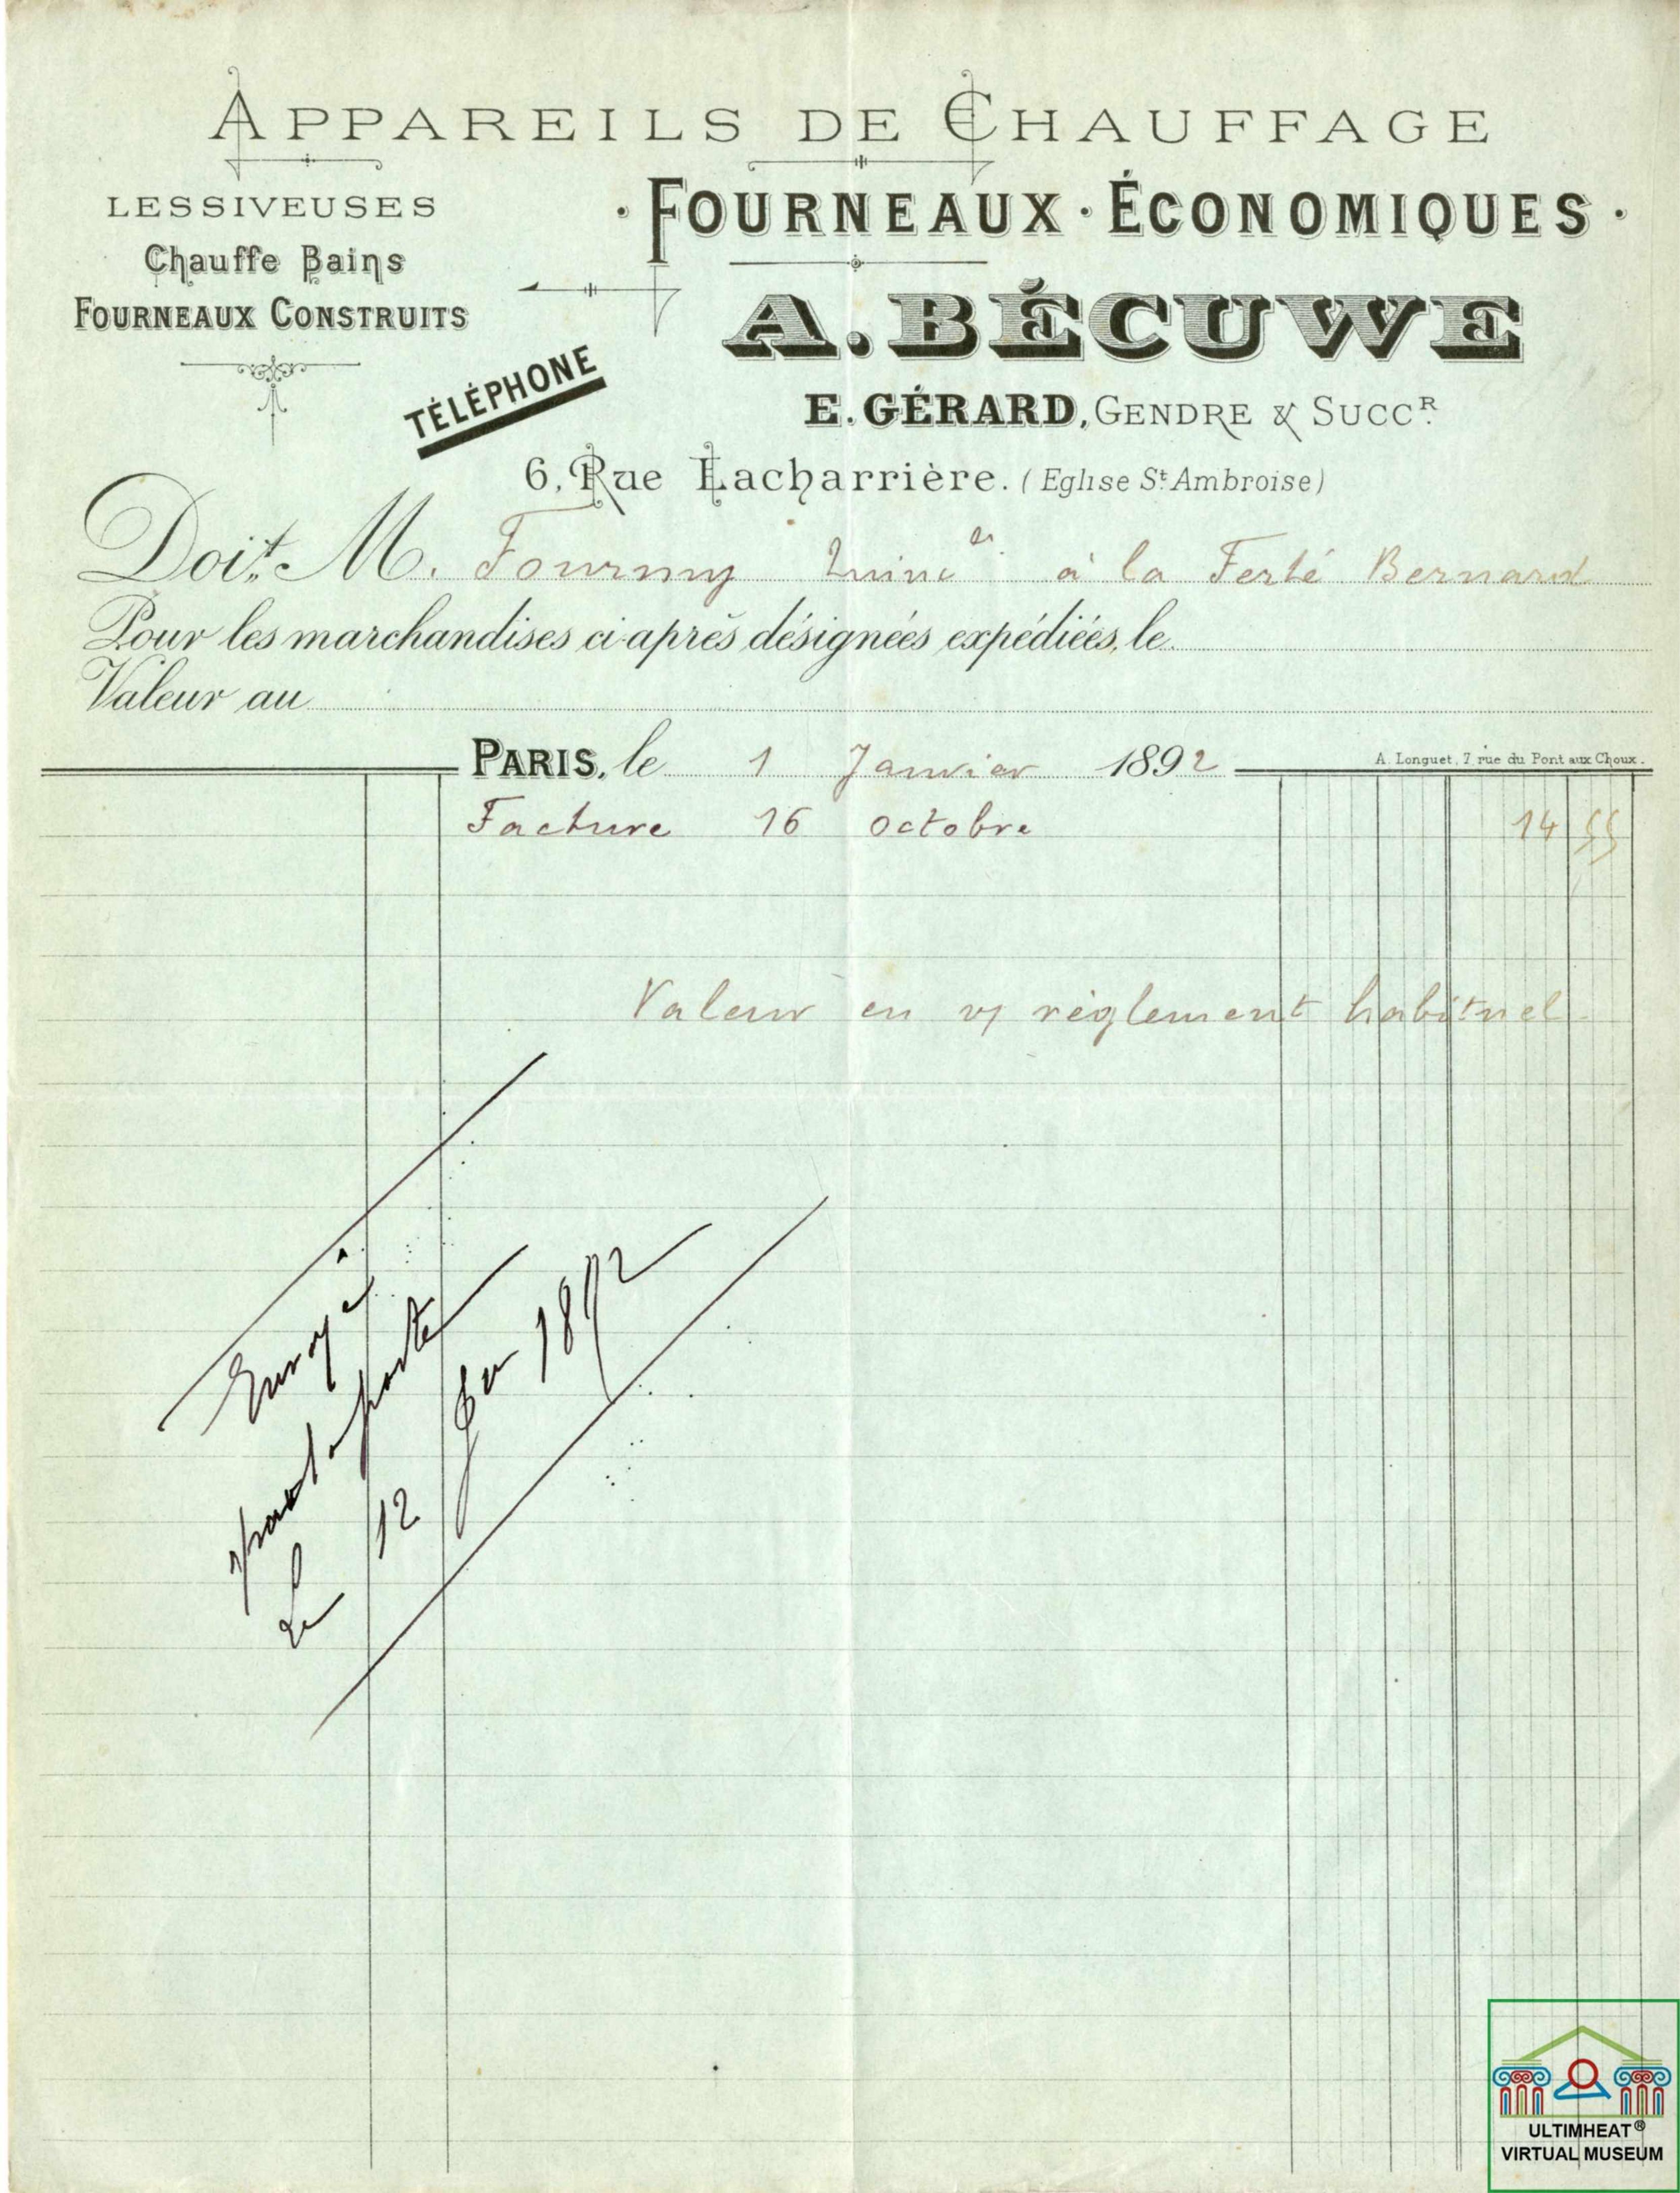 APPAREILS DE CHAUFFAGE
LESSIVEUSES
Chauffe Bains
FOURNEAUX CONSTRUITS
· FOURNEAUX · ÉCONOMIQUES ·
A. BÉCUWE
TÉLÉPHONE
E. GÉRARD, GENDRE & SUCCR.
6, Rue Lacharrière. (Eglise St Ambroise)
Doit M. Fournny à la Ferté Bernard
Pour les marchandises ci-après désignées expédiées, le
Valeur au
PARIS, le 1 Janvier 1892
A. Longuet, 7, rue du Pont aux Choux.
Facture 16 octobre 14 55
Valeur en v/ règlement habituel
Envoyé
par la poste
Le 12 1892
ULTIMHEAT®
VIRTUAL MUSEUM